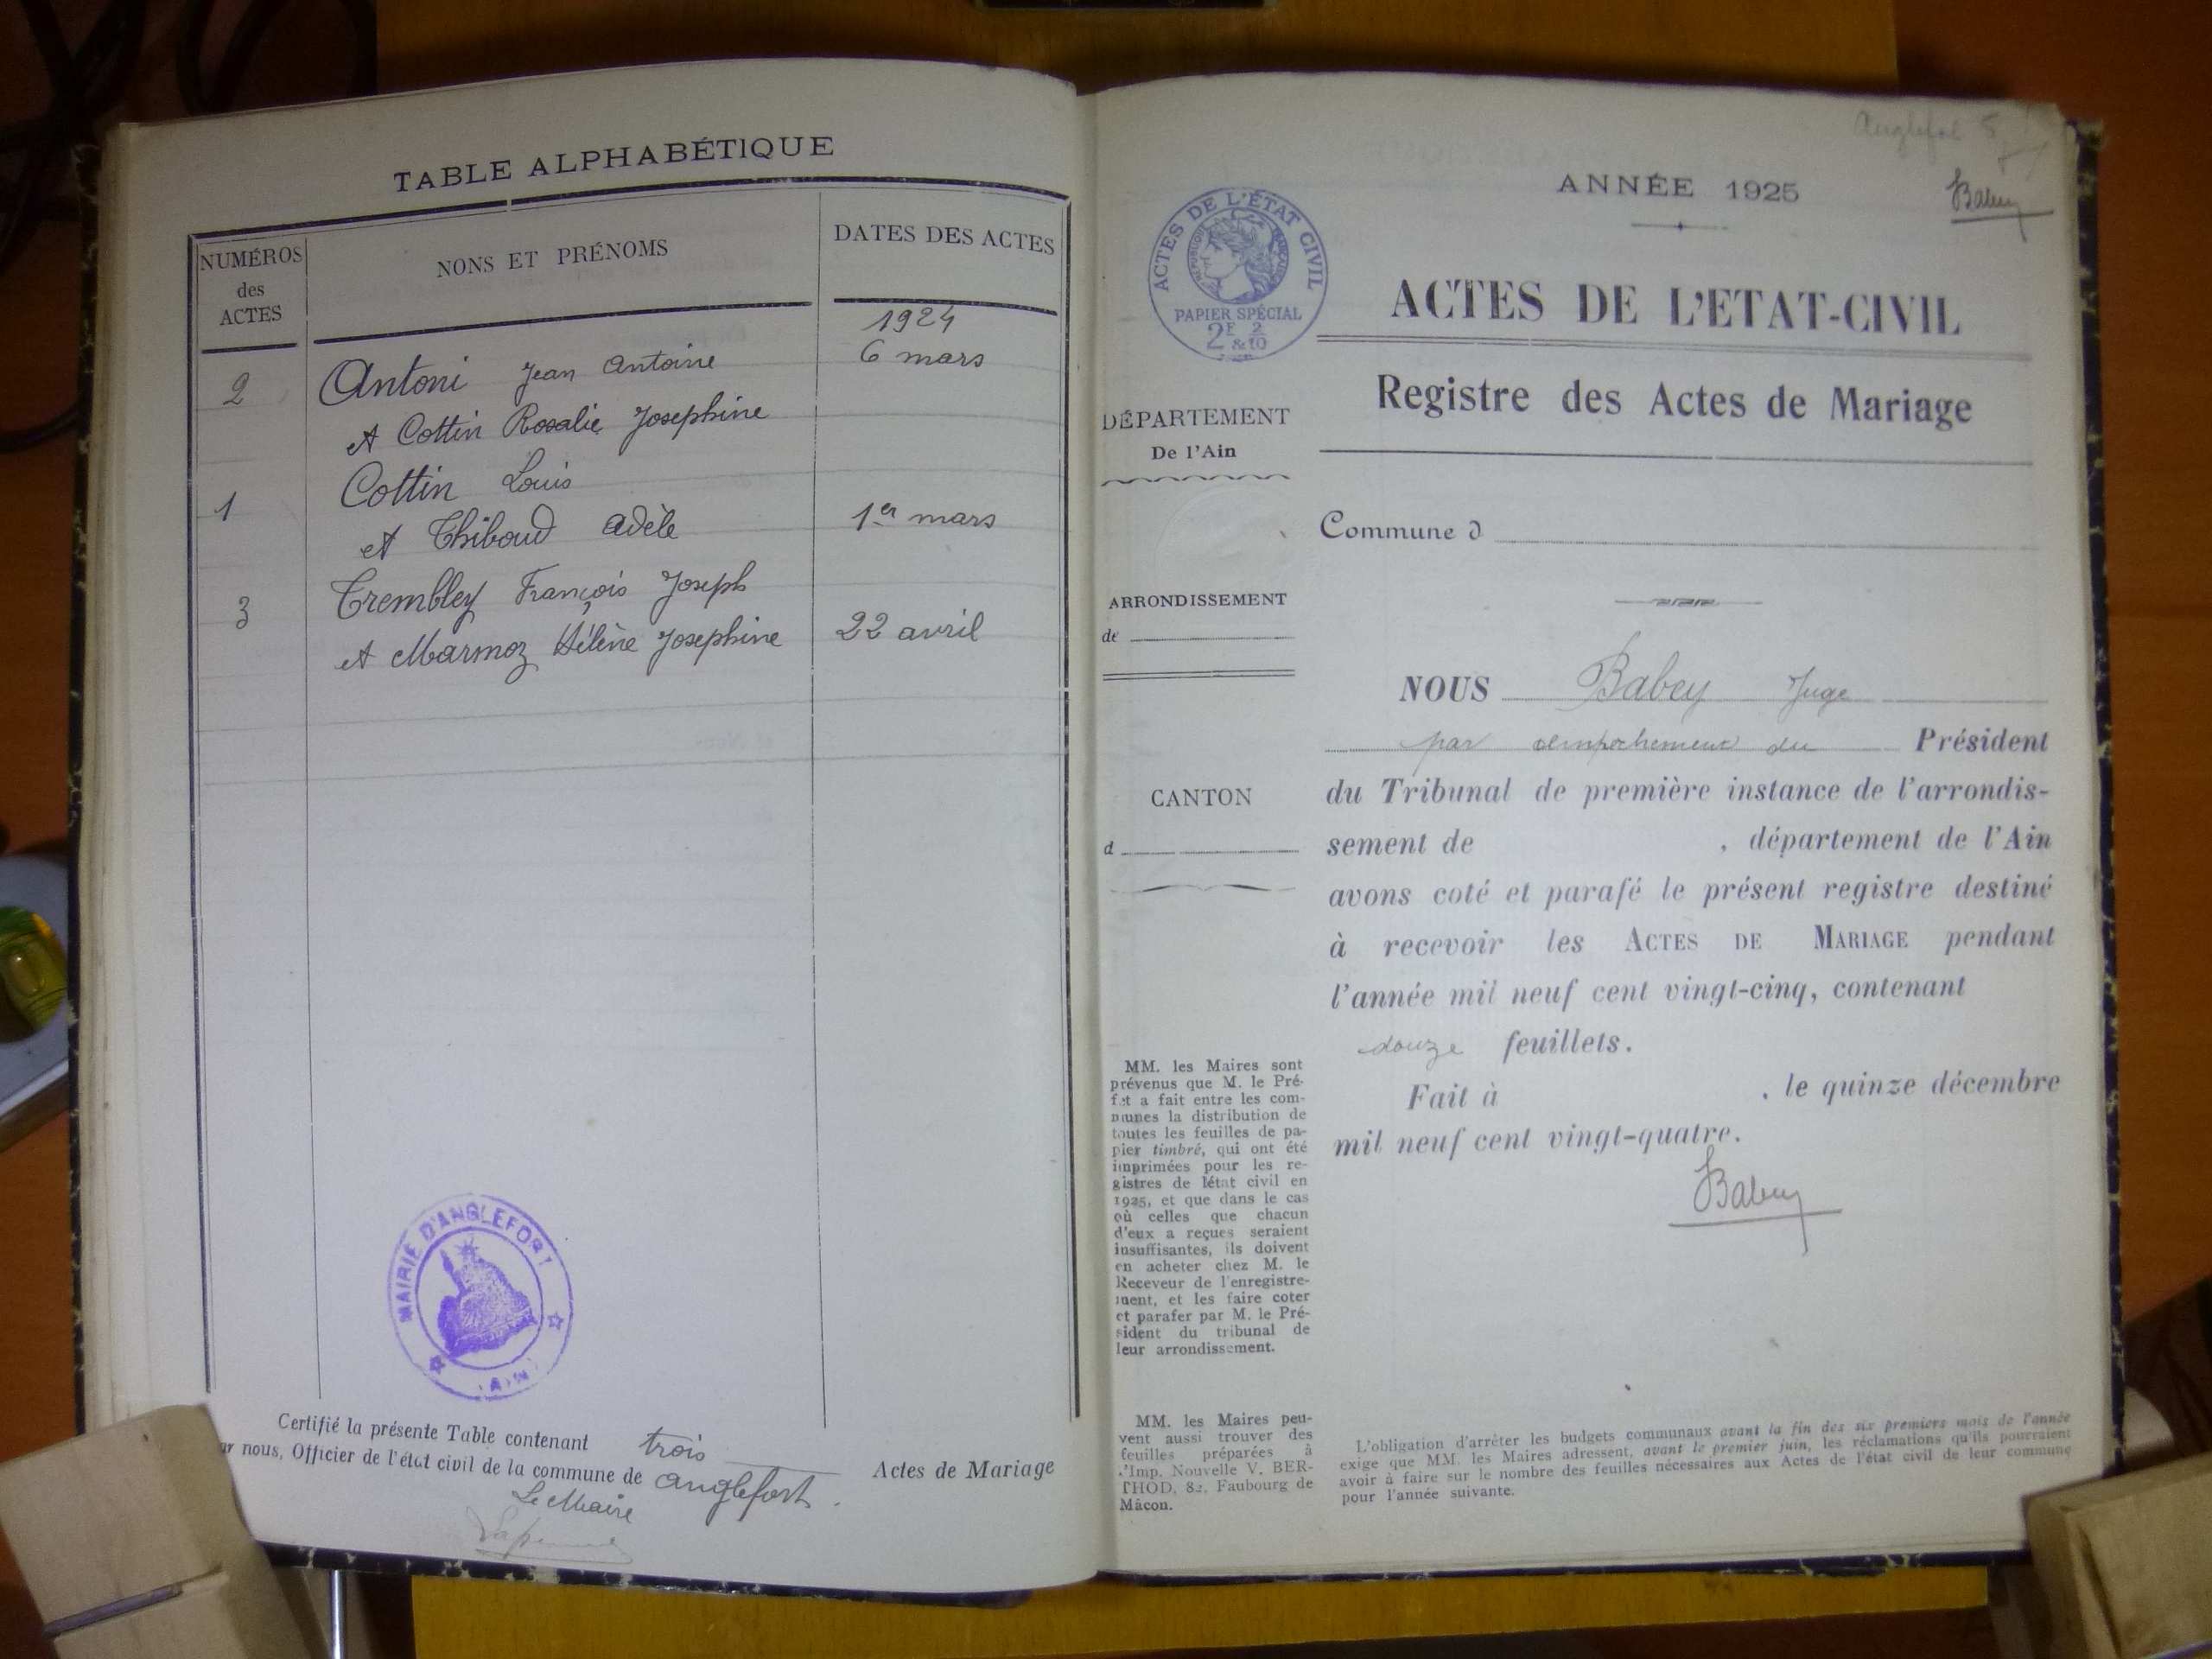 TABLE ALPHABÉTIQUE
NUMÉROS
des
ACTES
NONS ET PRÉNOMS
DATES DES ACTES
1924
2
Antoni Jean Antoine
6 mars
et Cottin Rosalie Josephine
1
Cottin Louis
et Thiboud Adèle
1er mars
3
Trembley François Joseph
et Marmoz Hélène Josephine
22 avril
MAIRIE D'ANGLEFORT
(AIN)
Certifié la présente Table contenant trois Actes de Mariage
nous, Officier de l'état civil de la commune de anglefort.
Le Maire
ANNÉE 1925
Babey
ACTES DE L'ÉTAT CIVIL
RÉPUBLIQUE FRANÇAISE
PAPIER SPÉCIAL
2F & 2/10
ACTES DE L'ETAT-CIVIL
Registre des Actes de Mariage
DÉPARTEMENT
De l'Ain
Commune d
ARRONDISSEMENT
de
CANTON
d
NOUS Babey Juge
par empêchement du Président
du Tribunal de première instance de l'arrondis-
sement de , département de l'Ain
avons coté et parafé le présent registre destiné
à recevoir les ACTES DE MARIAGE pendant
l'année mil neuf cent vingt-cinq, contenant
douze feuillets.
Fait à , le quinze décembre
mil neuf cent vingt-quatre.
Babey
MM. les Maires sont
prévenus que M. le Pré-
fet a fait entre les com-
munes la distribution de
toutes les feuilles de pa-
pier timbré, qui ont été
imprimées pour les re-
gistres de létat civil en
1925, et que dans le cas
où celles que chacun
d'eux a reçues seraient
insuffisantes, ils doivent
en acheter chez M. le
Receveur de l'enregistre-
ment, et les faire coter
et parafer par M. le Pré-
sident du tribunal de
leur arrondissement.
MM. les Maires peu-
vent aussi trouver des
feuilles préparées à
l'Imp. Nouvelle V. BER-
THOD, 82, Faubourg de
Mâcon.
L'obligation d'arrêter les budgets communaux avant la fin des six premiers mois de l'année
exige que MM. les Maires adressent, avant le premier juin, les réclamations qu'ils pourraient
avoir à faire sur le nombre des feuilles nécessaires aux Actes de l'état civil de leur commune
pour l'année suivante.